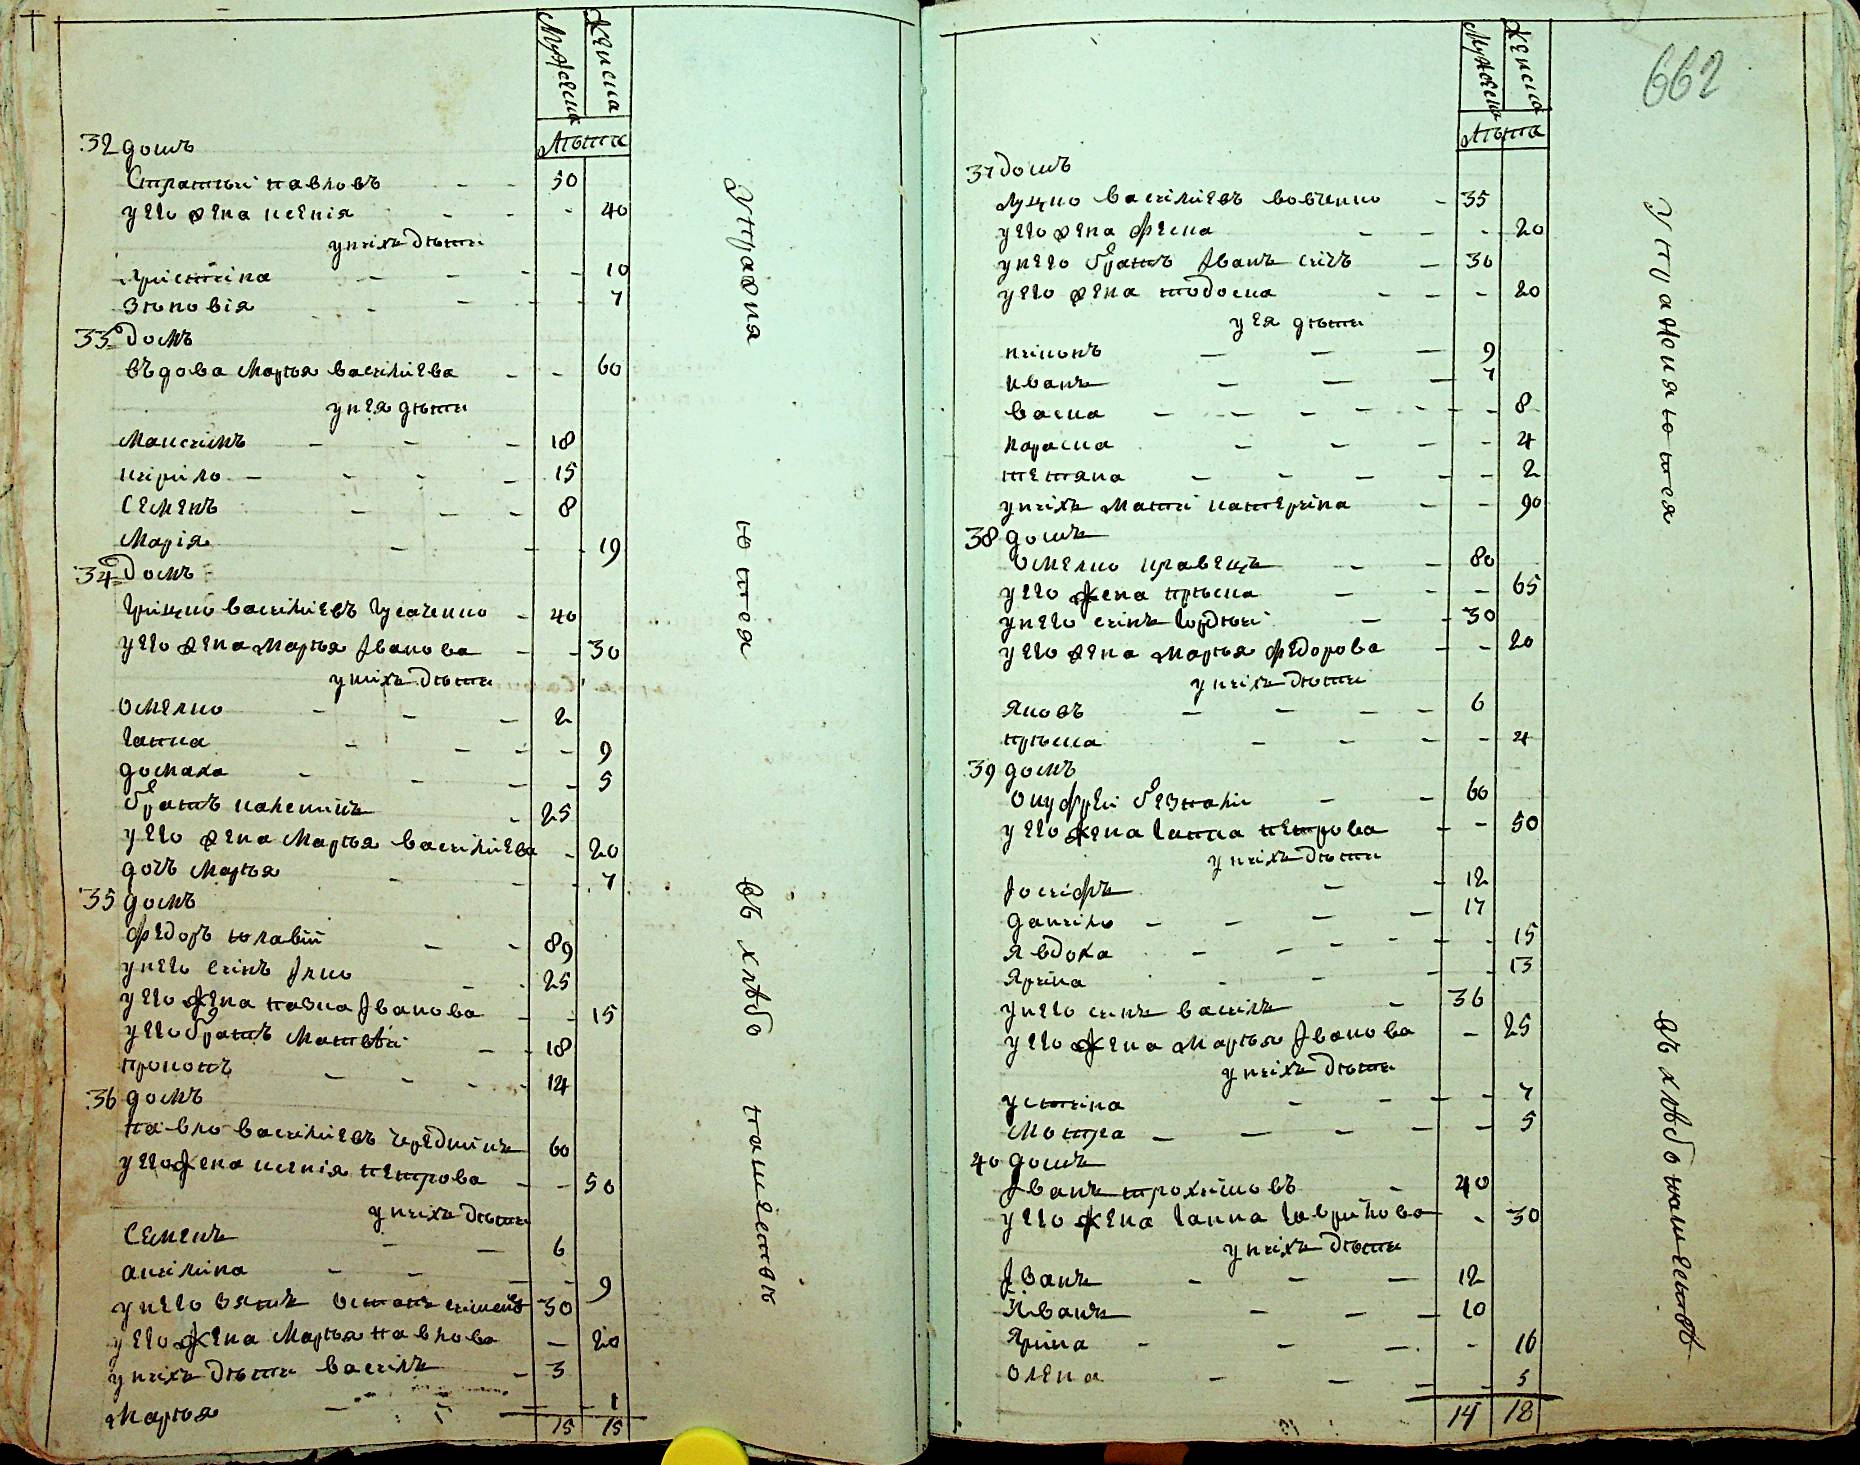 Мужеска
Женска
Лѣта
32 домъ
Стратий павловъ - - 50
у его жена ксенія - - - 40
у нихъ дѣти
Христина - - - - 10
Зѣновія - - - - 7
33 домъ
въдова Марѣя василиева - - 60
у нея дѣти
Максимъ - - - 18
кирило - - - - 15
Семенъ - - - 8
Марія - - - 19
34 домъ
Грицко василиевъ Гусаченко - 40
у его жена Марѣя Іванова - - 30
у нихъ дѣти
Омелко - - - 2
Ганна - - - - 9
домаха - - - 5
братъ - 25
у его жена Марѣя василиева - 20
дочъ Марѣя - - - 7
35 домъ
Федоръ - - 89
у него синъ Ілко - - 25
у его жена пазка Іванова - - 15
у его братъ Матвѣй - - 18
прокопъ - - - - 14
36 домъ
павло василиевъ 60
у его жена ксенія петрова - - 50
у нихъ дѣти
Семенъ - - 6
акилина - - - - 9
у него зять Остапъ 30
у его жена Марѣя павлова - 20
у нихъ дѣти василъ - 3
Марѣя - - 1
15 15
Упражня
ются
въ хлѣбо
пашествѣ
662
Мужеска
Женска
Лѣта
37 домъ
Луцко василиевъ вовченко - 35
у его жена феска - - - 20
у него братъ Іванъ сичъ - 30
у его жена тодоска - - - 20
у ея дѣти
никонъ - - - 9
иванъ - - - 7
васка - - - - - - - 8
параска - - - - 4
тетяна - - - - - 2
у нихъ мати катерина - - 90
38 домъ
Омелко кравецъ - - 80
у его жена прѣска - - - 65
у него синъ Гордѣй - - 30
у его жена Марѣя федорова - - 20
у нихъ дѣти
Яковъ - - - - 6
прѣска - - - - 4
39 домъ
Онуфрей - - 60
у его жена Ганна петрова - - 50
у нихъ дѣти
Іосифъ - - 12
данило - - - - 17
Явдоха - - - - - - 15
Ярина - - - - 13
у него синъ василъ - 36
у его жена Марѣя Іванова - 25
у нихъ дѣти
устина - - - - 7
Мотра - - - - - 5
40 домъ
Іванъ трохимовъ - 40
у его жена Ганна Гаврилова - 30
у нихъ дѣти
Іванъ - - - 12
Иванъ - - - 10
Ярина - - - - 16
Олена - - - - 5
14 18
Упражняются
въ хлѣбопашествѣ